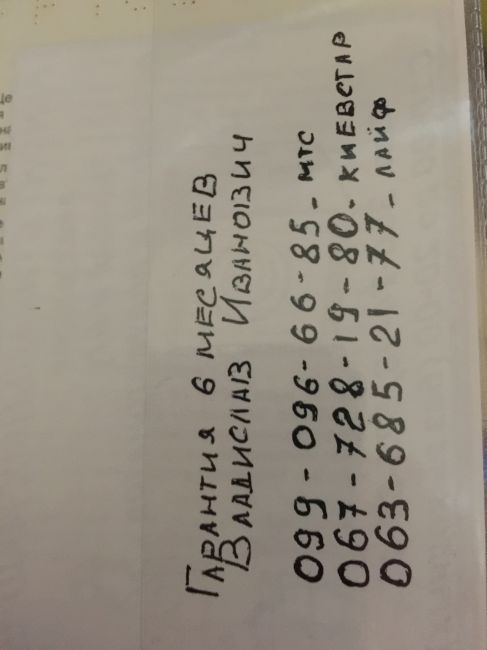 Гарантия 6 месяцев
Владислав Иванович
099-096-66-85-мтс
067-728-19-80-Киевстар
063-685-21-77-лайф